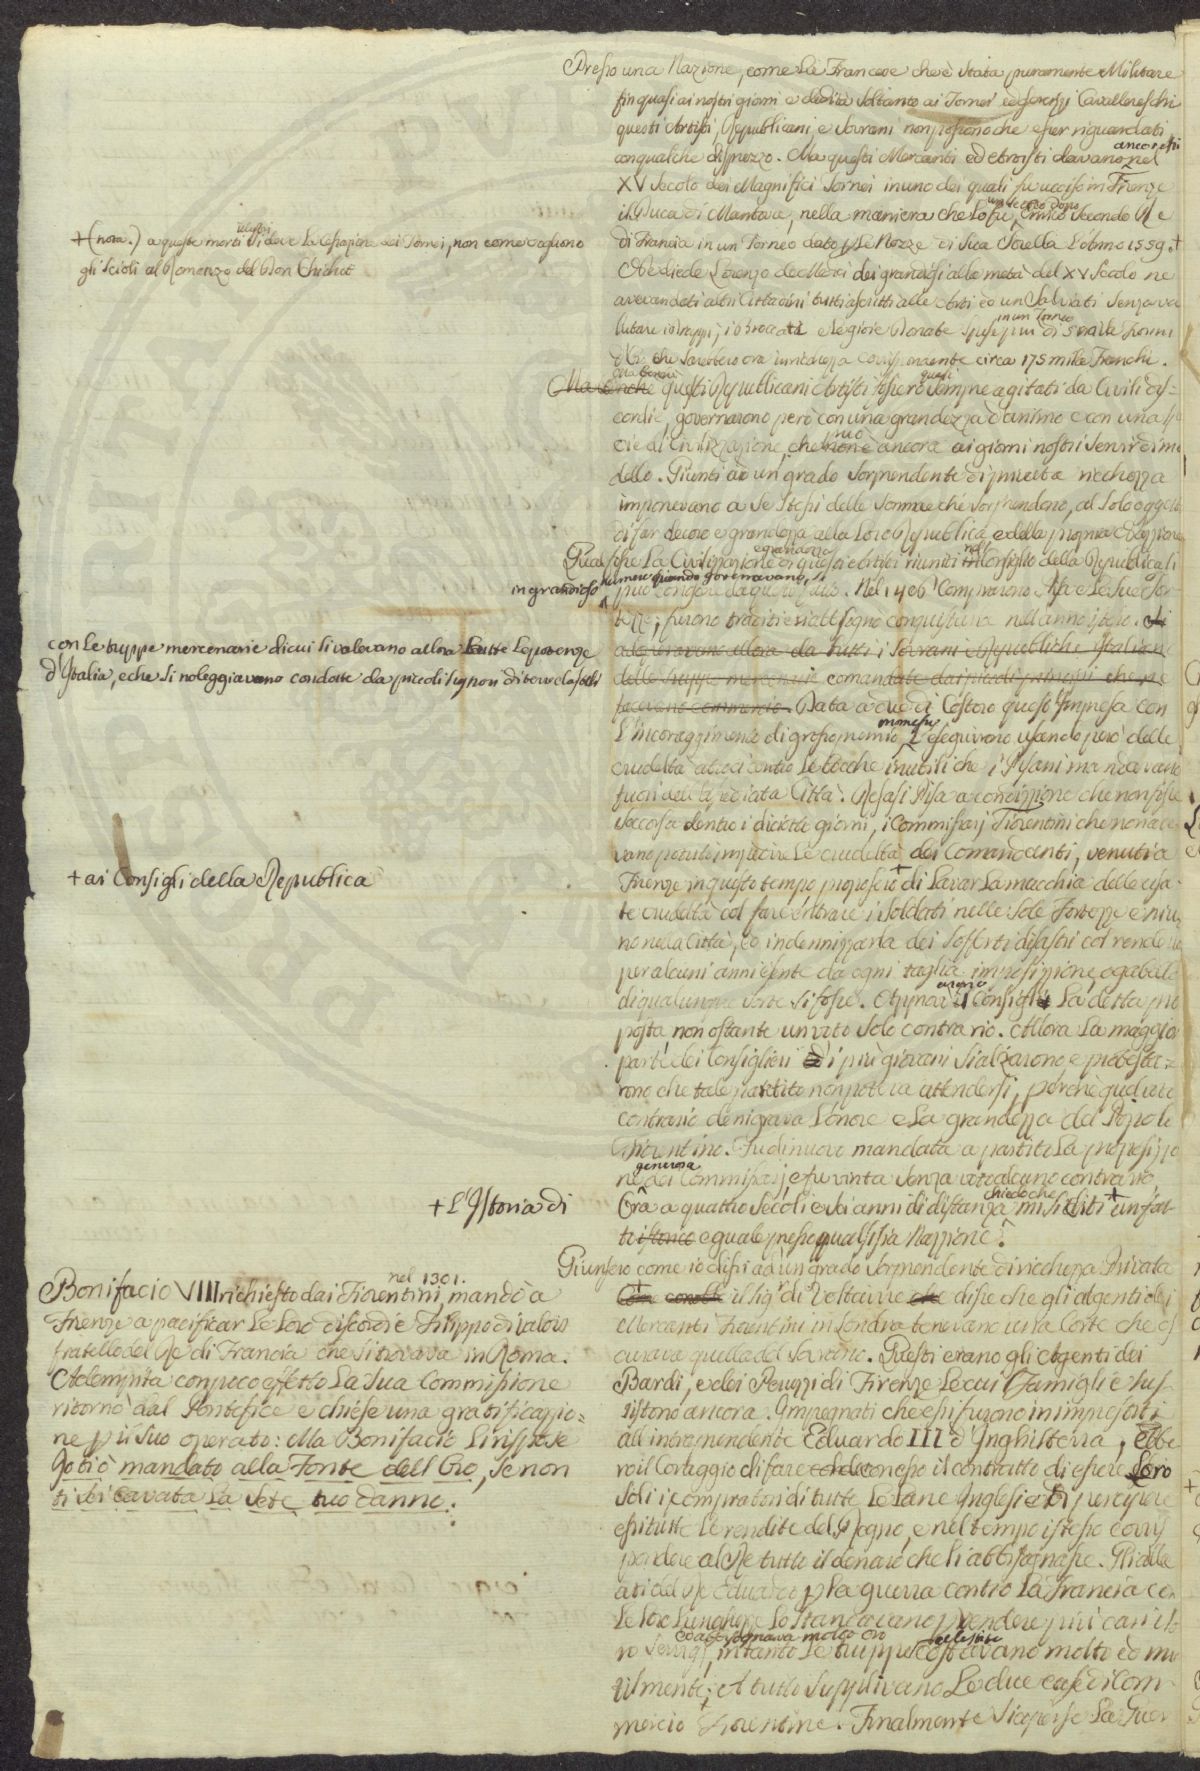 Presso una Nazione, come la Francese che è stata puramente Militare
fin quasi ai nostri giorni e dedita soltanto ai Tornei ed esercizj Cavallereschi
questi Artisti, Republicani, e Sovrani non possono che esser riguardati
con qualche disprezzo. Ma questi Mercanti ed Artisti davano ancor essi nel
XV Secolo dei Magnifici Tornei in uno dei quali fu ucciso in Firenze
il Duca di Mantova, nella maniera che lo fu, un secolo dopo Enrico Secondo Re
di Francia in un Torneo dato p le Nozze di Sua Sorella l'Anno 1559.+
+(nota.) a queste morti illustri si deve la cessazione dei Tornei, non come vogliono
gli Scioli al Romanzo del Don Chichot
Ne diede Lorenzo de Medici dei grandiosi alla metà del XV Secolo ne
avevan dati altri Cittadini tutti ascritti alle Arti ed un Salviati senza va
lutare i drappi, i broccati e le gioie donate spese in un Torneo più di 5 mila fiorini
d'oro che sarebbero ora in ricchezza corrispondente circa 175 mila Franchi.
questi Republicani Artisti fossero quasi sempre agitati da Civili dis=
cordie, governarono però con una grandezza d'animo e con una spe
cie di Civilizzazione, che può ancora ai giorni nostri servir di mo
dello. Giunti ad un grado sorprendente di privata ricchezza
imponevano a se stessi delle somme che sorprendono, al solo oggetto
di far decoro e grandezza alla loro Republica, e della propria Nazione
Qual fosse la Civilizzazione e grandezza di questi Artisti riuniti nel Consiglio della Republica li
in grandioso numero quando governavano, si
può congetturare da questo fatto. Nel 1406 comprarono Pisa e le sue For
tezze; furono traditi e li bisognò conquistarla nell'anno istesso.
con le truppe mercenarie di cui si valevano allora tutte le potenze
d'Italia, e che si noleggiavano condotte da piccoli signori di terre e castelli
Data a due di costoro questa Impresa con
l'incoraggimento di grosso premio promesso, l'eseguirono usando però delle
crudeltà atroci contro le bocche inutili che i Pisani mandavano
fuori della assediata Città. Resasi Pisa a condizione che non fosse
soccorsa dentro i diciotto giorni, i Commissarj Fiorentini che non ave
vano potuto impedire le crudeltà dei Comandanti, venuti a
Firenze in questo tempo proposero + di lavar la macchia delle usa
+ ai Consigli della Republica
te crudeltà col far entrare i soldati nelle sole Fortezze e niu
no nella Città, ed indennizzarla dei sofferti disastri col renderla
per alcuni anni esente da ogni taglia imposizione, e gabella
di qualunque sorte si fosse. Approvò il Consiglio la detta pro
posta, non ostante un voto solo contrario. Allora la maggior
parte dei Consiglieri i più giovani si alzarono, e protesta=
rono che tale partito non poteva attendersi, perchè quel voto
contrario denigrava l'onore e la grandezza del Popolo
Fiorentino. Fu di nuovo mandata a partito la proposizio
ne generosa dei Commissarj, e fu vinta senza voto alcuno contrario.
Ora a quattro secoli e sei anni di distanza chiedo che mi si citi + un fat
to eguale presso qualsisia Nazione.
+ l'Istoria di
Giunsero come io dissi ad un grado sorprendente di ricchezza Privata
il Sigr di Voltaire disse che gli agenti dei
Mercanti Fiorentini in Londra tenevano una Corte che os
curava quella del Sovrano. Questi erano gli Agenti dei
Bardi, e dei Peruzzi di Firenze le cui Famiglie sus
sistono ancora. Impegnati che essi furono in imprestiti
all'intraprendente Eduardo III d'Inghilterra, ebbe
ro il Coraggio di fare con esso il contratto di essere Loro
soli i compratori di tutte le lane Inglesi e di percipere
essi tutte le rendite del Regno, e nel tempo istesso corris
pondere al Re tutto il denaro che li abbisognasse. Gli alle
ati del Re Eduardo p la guerra contro la Francia con
le loro lunghezze lo stancavano p vendere più cari i lo
ro servigi, ed abbisognava molto oro intanto le truppe costavano molto ed inu
tilmente; A tutto supplivano le due case di Com
mercio Fiorentine. Finalmente si aperse la Guer
Bonifacio VIII richiesto dai Fiorentini nel 1301. mandò a
Firenze a pacificar le loro discordie Filippo di Valois
fratello del Re di Francia che si trovava in Roma.
Adempita con poco effetto la sua Commissione
ritornò dal Pontefice e chiese una gratificazio=
ne p il suo operato: Ma Bonifacio li rispose
Io ti ò mandato alla Fonte dell'Oro, se non
ti sei cavata la sete tuo danno.